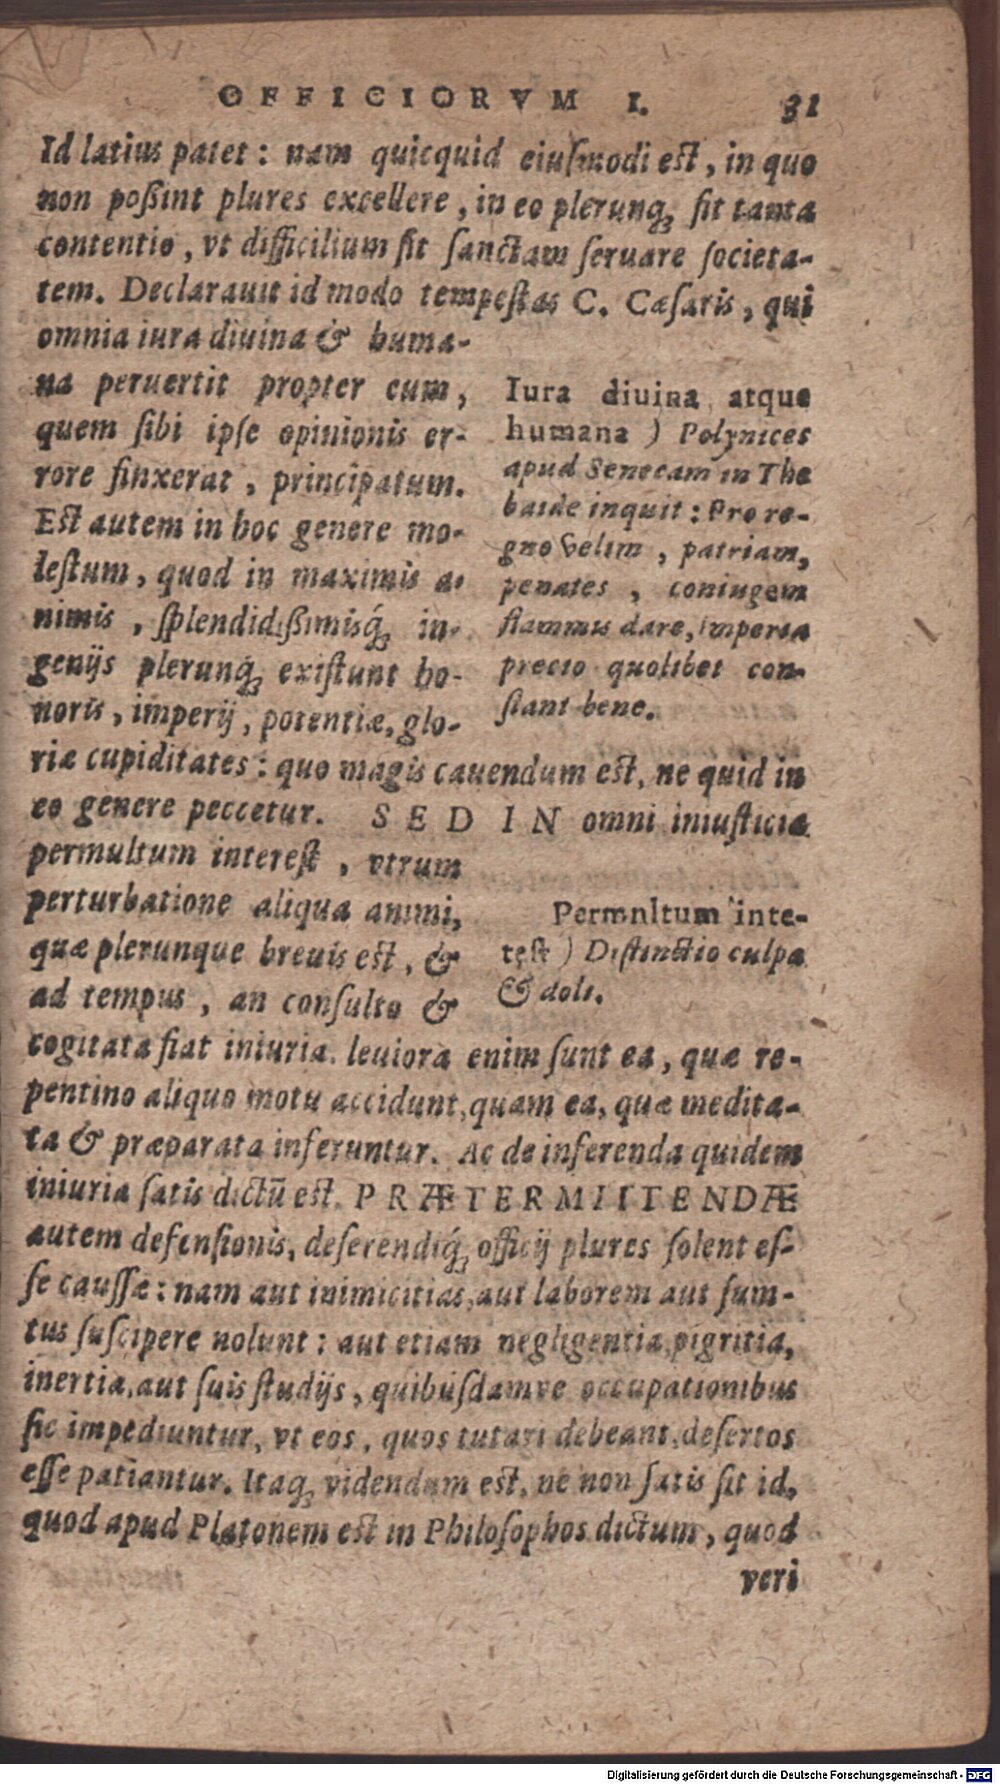 OFFICIORVM I. 31
Id latius patet : nam quicquid eiuſmodi est, in quo
non poßint plures excellere, in eo plerunq́; ſit tanta
contentio, vt difficilium ſit ſanctam ſeruare ſocieta-
tem. Declarauit id modo tempeſtas C. Cæſaris, qui
omnia iura diuina & huma-
na peruertit propter eum,
quem ſibi ipſe opinionis er-
rore finxerat, principatum.
Est autem in hoc genere mo-
leſtum, quod in maximis a-
nimis, ſplendidißimisq́; in-
genijs plerunq́; exiſtunt ho-
noris, imperij, potentiæ, glo-
riæ cupiditates: quo magis cauendum est, ne quid in
eo genere peccetur. SED IN omni iniuſticia
permultum intereſt, vtrum
perturbatione aliqua animi,
quæ plerunque breuis est, &
ad tempus, an conſulto &
cogitata fiat iniuria. leuiora enim ſunt ea, quæ re-
pentino aliquo motu accidunt, quam ea, quæ medita-
ta & præparata inferuntur. Ac de inferenda quidem
iniuria ſatis dictũ est. PRÆTERMITTENDÆ
autem defenſionis, deſerendiq́; officij plures ſolent eſ-
ſe cauſſæ: nam aut inimicitias, aut laborem aut ſum-
tus ſuſcipere nolunt: aut etiam negligentia, pigritia,
inertia, aut ſuis ſtudijs, quibuſdamve occupationibus
ſic impediuntur, vt eos, quos tutari debeant, deſertos
eſſe patiantur. Itaq; videndum est, ne non ſatis ſit id,
quod apud Platonem est in Philoſophos dictum, quod
veri
Iura diuina atque
humana ) Polynices
apud Senecam in The
baide inquit: Pro re-
gno velim, patriam,
penates, coniugem
flammis dare, imperia
precio quolibet con-
ſtant bene.
Permnltum inte-
reſt ) Diſtinctio culpæ
& doli.
Digitalisierung gefördert durch die Deutsche Forschungsgemeinschaft - DFG